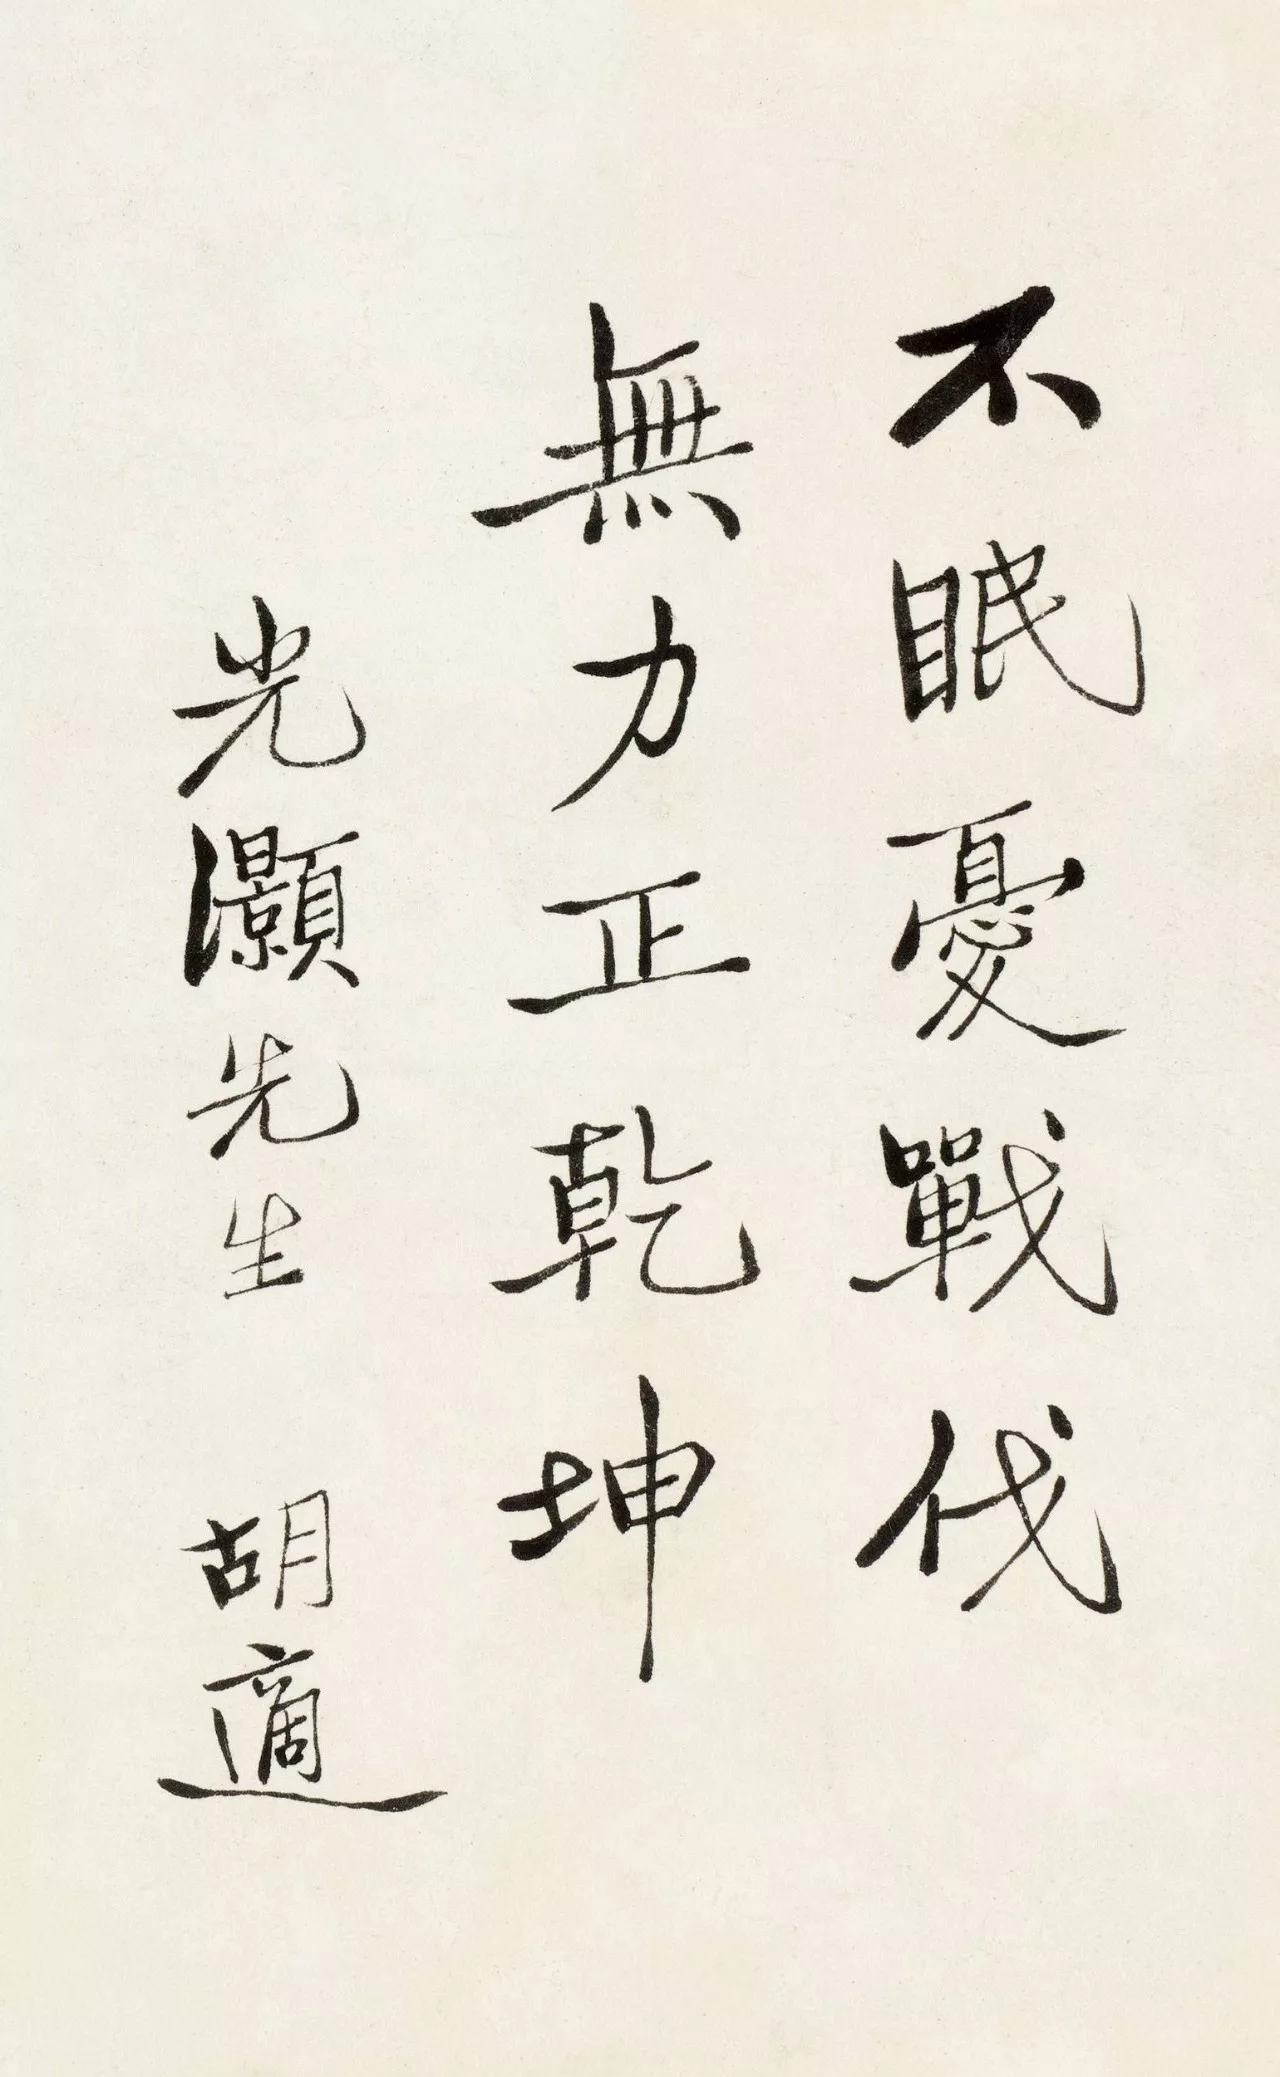 不眠憂戰伐
無力正乾坤
光灝先生 胡適